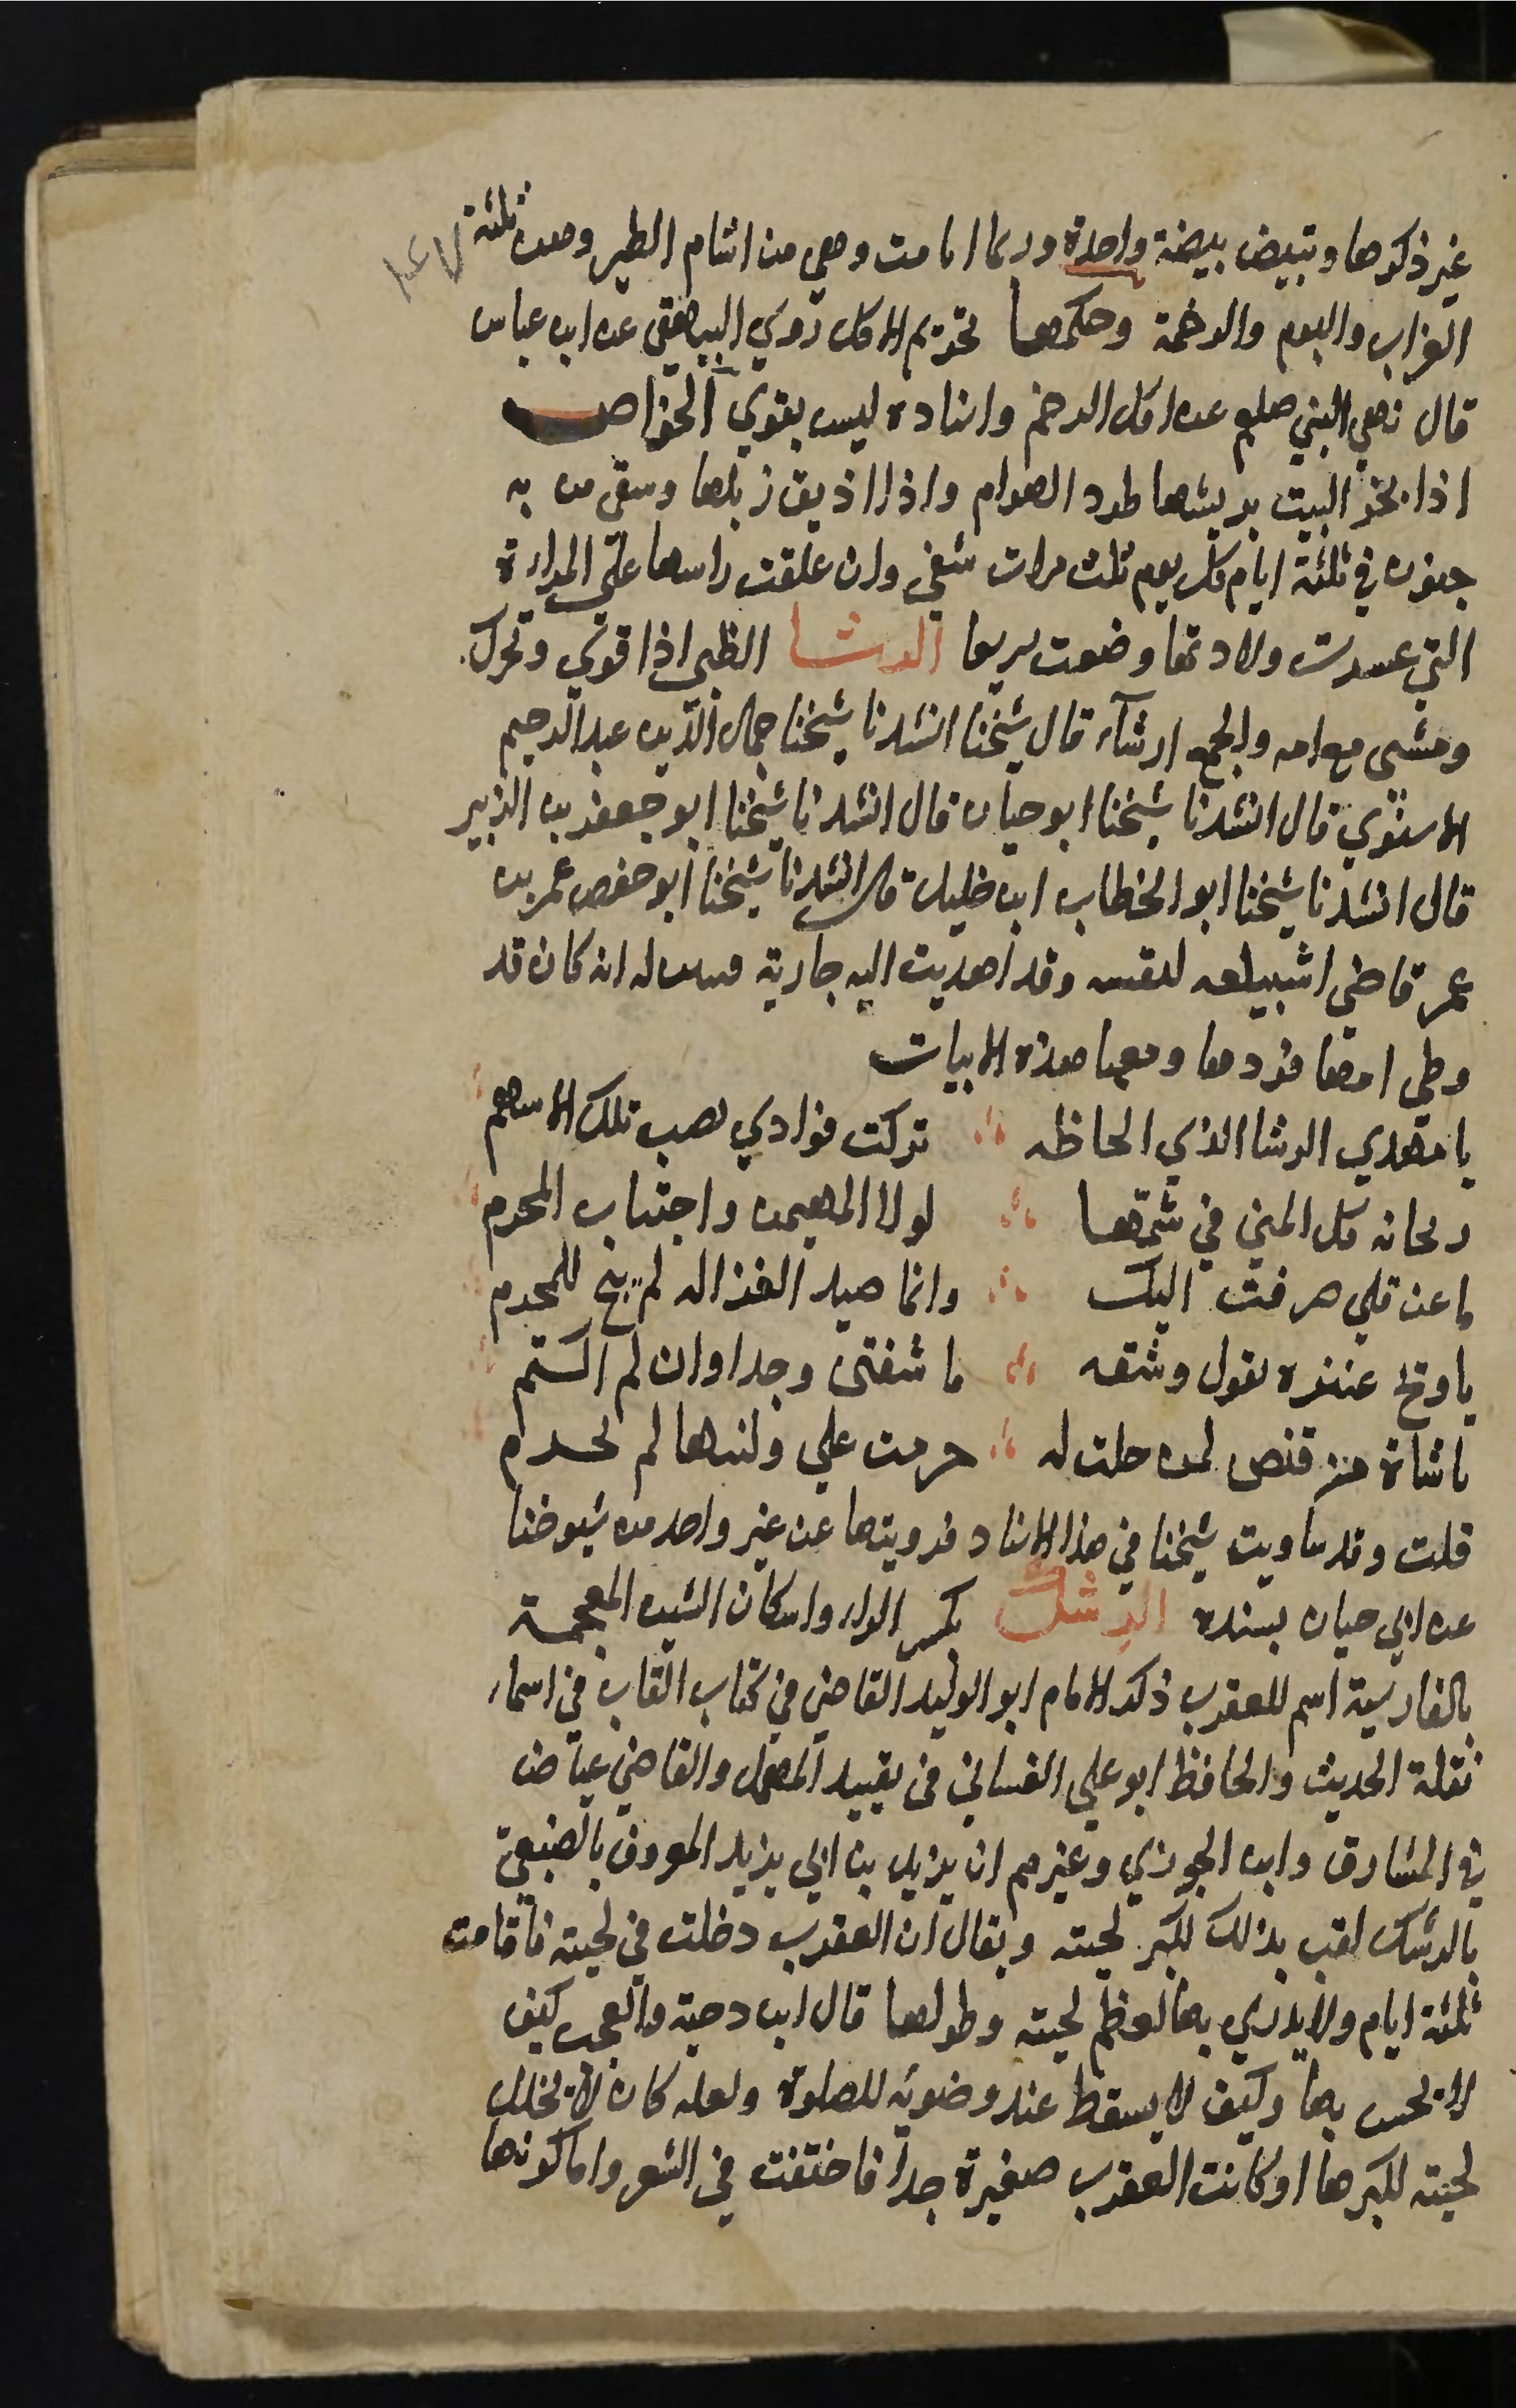 غير ذكرها وتبيض بيضة واحدة وربما اتامت وهي من اشام الطير وهن ثلثة
الغراب والبوم والرخمة وحكمها تحريم الاكل روي البيهقي عن ابن عباس
قال نهي النبي صلعم عن اكل الرخم واسناده ليس بقوي الخواص
اذا بخر البيت بريشها طرد الهوام واذا اذيق زبلها وسقي من به
جنون في ثلثة ايام كل يوم ثلث مرات شفي وان علقت راسها على المراة
التي عسرت ولادتها وضعت سريعا الرشا الظبي اذا قوي وتحرك
ومشى مع امه والجمع ارشآء قال شيخنا انشدنا شيخنا جمال الدين عبد الرحيم
الاسنوي قال انشدنا شيخنا ابو حيان قال انشدنا شيخنا ابو جعفر بن الزبير
قال انشدنا شيخنا ابو الخطاب ابن خليل قال انشدنا شيخنا ابو حفص عمر بن
عمر قاضي اشبيليه لنفسه وقد اهديت اليه جارية فتبين له انه كان قد
وطي امها فردها ومعها هذه الابيات
يا مهدي الرشا الذي الحاظه تركت فوادي نصب تلك الاسهم
ريحانه كل المنى في شمها لولا المهيمن واجتناب المحرم
ما عن قلي صرفت اليك وانما صيد الغزاله لم يبح للمحرم
يا ويح عنتره يقول وشقه ما شفني وجدا وان لم اكتم
يا شاة من قنص لمن حلت له حرمت علي وليتها لم تحرم
قلت وقد ساويت شيخنا في هذا الاسناد فرويتها عن غير واحد من شيوخنا
عن ابي حيان بسنده الرشك بكسر الراء واسكان الشين المعجمة
بالفارسية اسم للعقرب ذكر الامام ابو الوليد القاضي في كتاب القاب في اسماء
نقلة الحديث والحافظ ابو علي الغساني في تقييد المهمل والقاضي عياض
في المشارق وابن الجوزي وغيرهم ان يزيد بن ابي يزيد المعروف بالضبعي
بالرشك لقب بذلك لكبر لحيته ويقال ان العقرب دخلت في لحيته فاقامت
ثلثة ايام ولا يدري بها لعظم لحيته وطولها قال ابن دحية والعجب كيف
لا يحس بها وكيف لا يسقط عند وضوئه للصلوة ولعله كان لا يخلل
لحيته لكبرها او كانت العقرب صغيرة جدا فاختفت في الشعر واما كونها